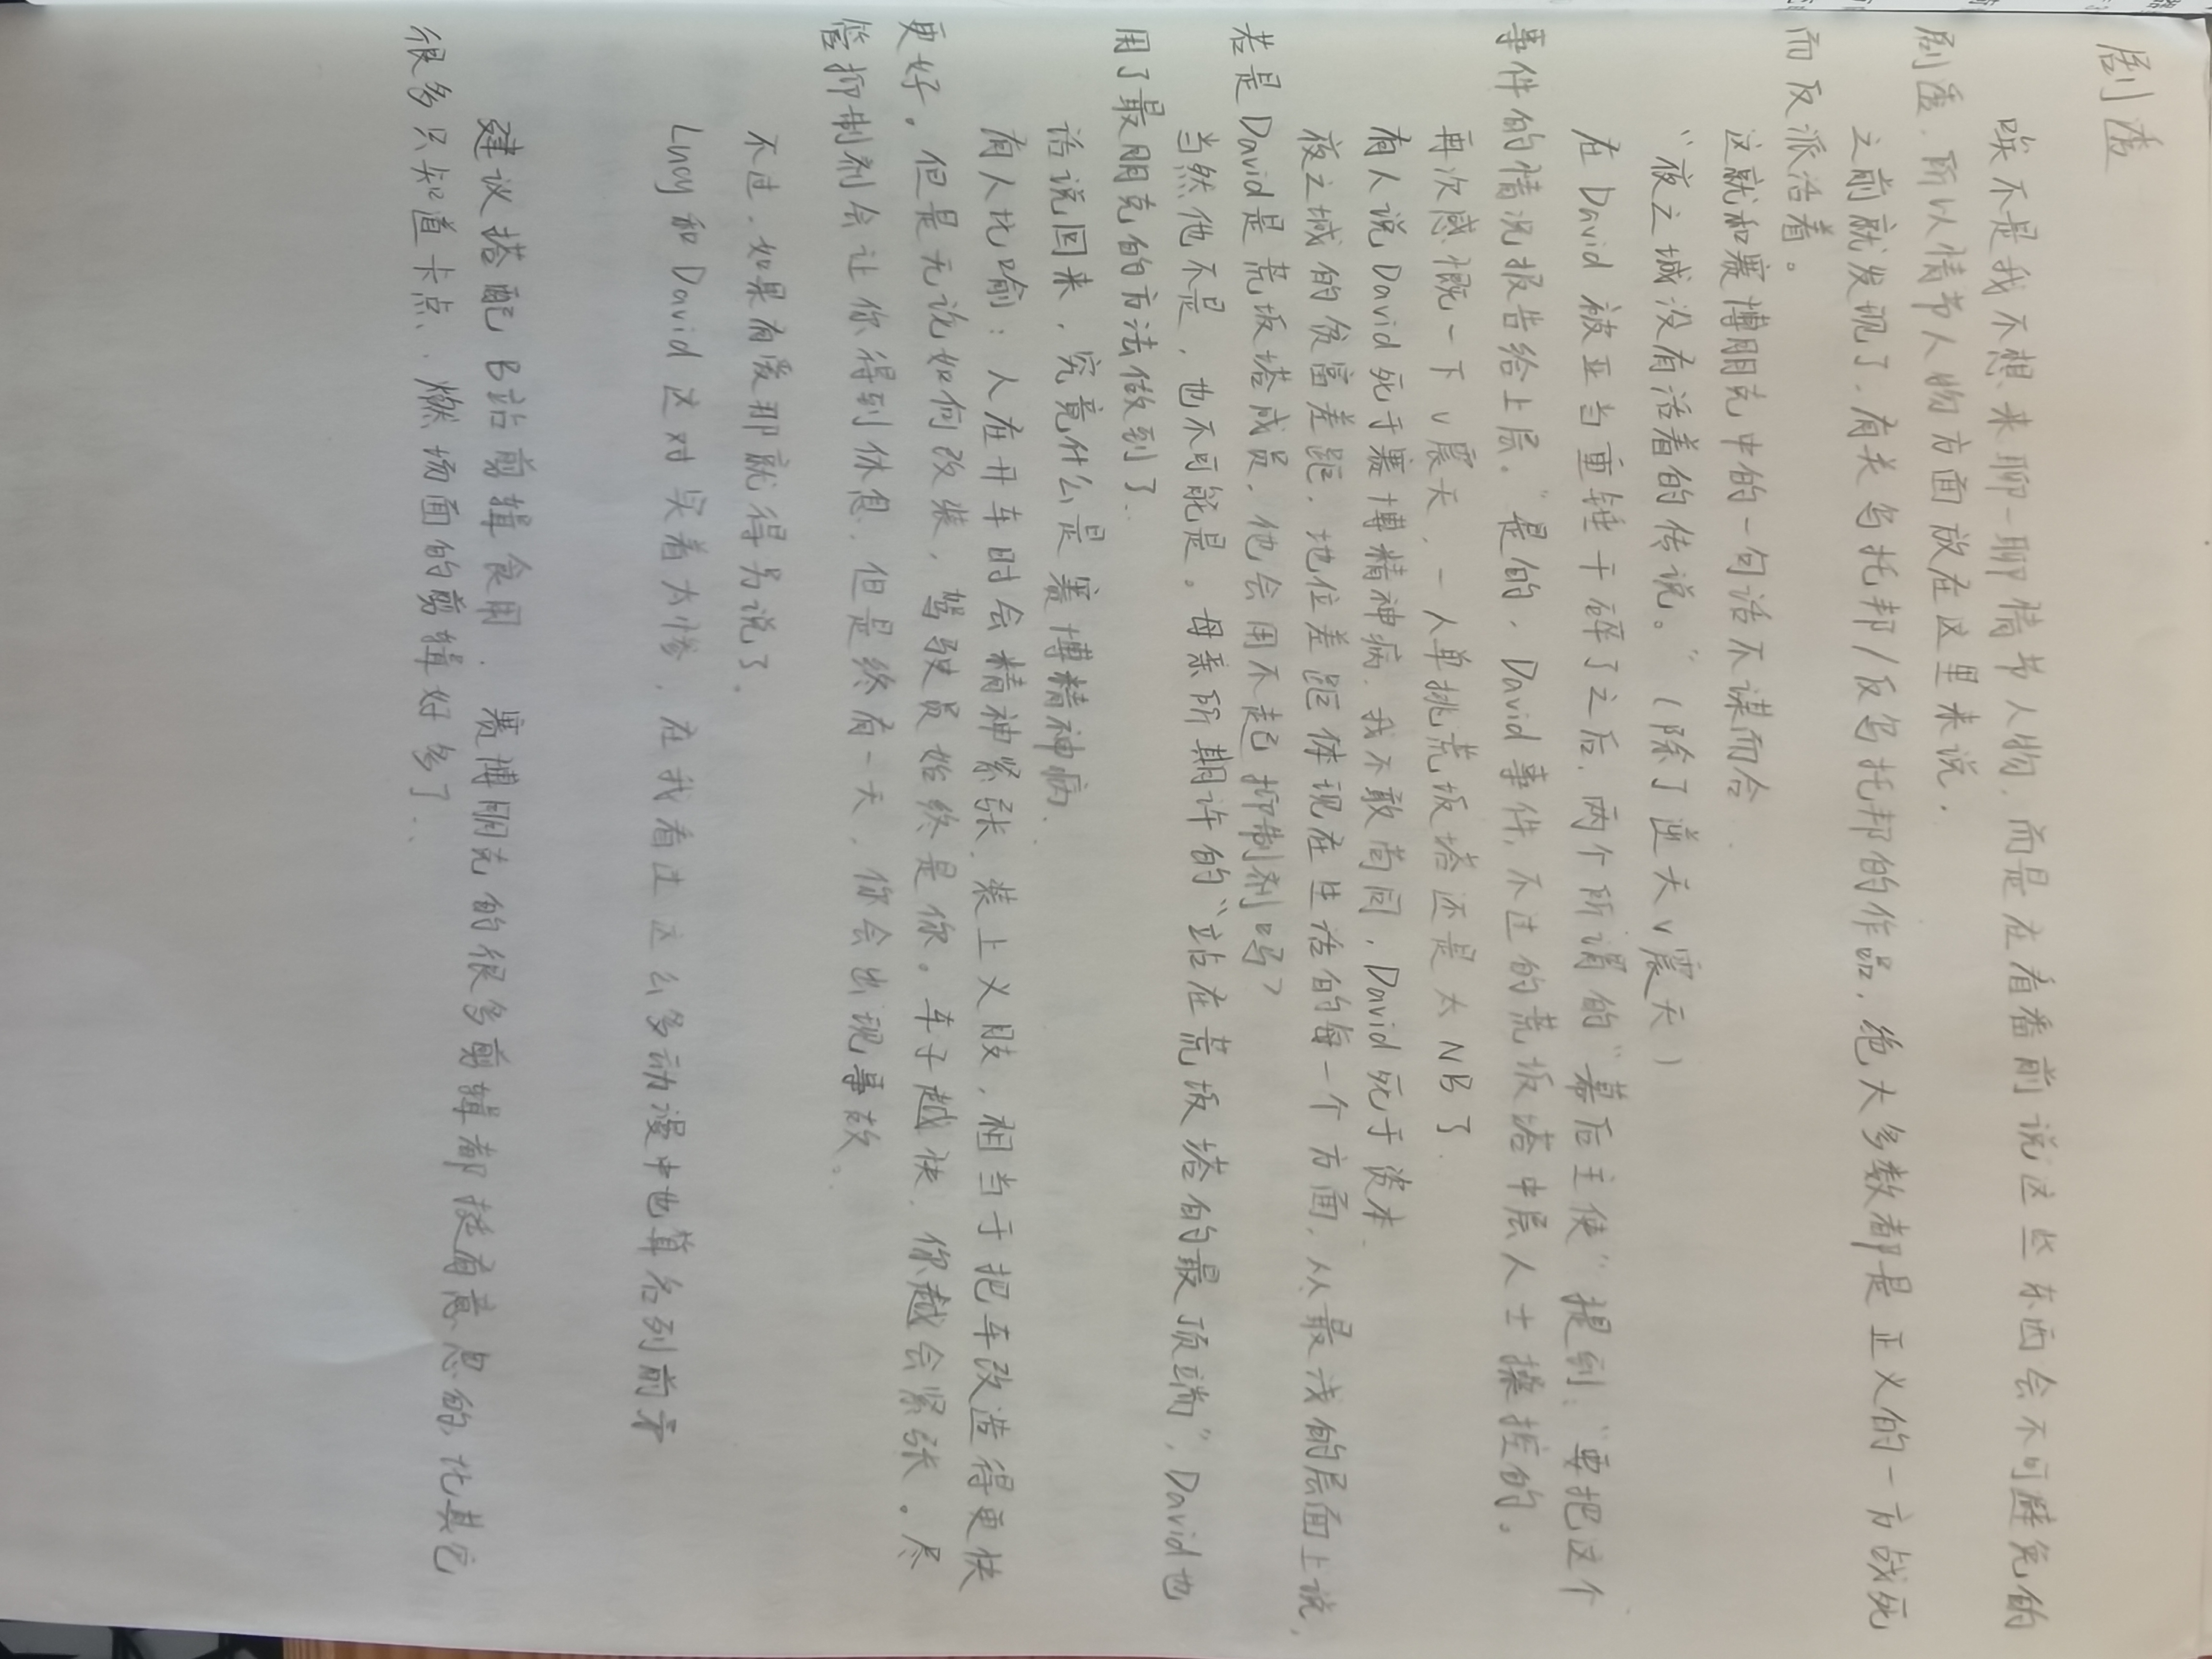 剧透
唉不是我不想来聊一聊情节人物，而是在看番前说这些东西会不可避免的
剧透，所以情节人物方面放在这里来说，
之前就发现了，有关乌托邦/反乌托邦的作品，绝大多数都是正义的一方战死
而反派活着。
这就和赛博朋克中的一句话不谋而合
“夜之城没有活着的传说。”（除了逆天v震天）
在David被亚当重锤干碎了之后，两个所谓的“幕后主使”提到：“要把这个
事件的情况报告给上层。”是的，David事件，不过的荒坂塔中层人士操控的。
再次感慨一下v震天，一人单挑荒坂塔还是太NB了.
有人说David死于赛博精神病，我不敢苟同，David死于资本.
夜之城的贫富差距，地位差距体现在生活的每一个方面，从最浅的层面上说，
若是David是荒坂塔成员，他会用不起抑制剂吗？
当然他不是，也不可能是。母亲所期许的“站在荒坂塔的最顶端”，David也
用了最朋克的方法做到了..
话说回来，究竟什么是赛博精神病.
有人比喻：人在开车时会精神紧张，装上义肢，相当于把车改造得更快
更好。但是无论如何改装，驾驶员始终是你。车子越快，你越会紧张。尽
管抑制剂会让你得到休息，但是终有一天，你会出现事故..
不过，如果有爱那就得另说了.
Lucy和David这对 着太惨，在我看过这么多动漫中也算名列前矛
建议搭配B站剪辑食用，赛博朋克的很多剪辑都挺有意思的，比其它
很多只知道卡点、燃场面的剪辑好多了..